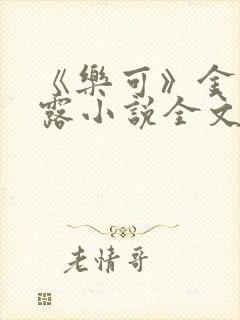 《樂可》金
露小說全文
老情哥